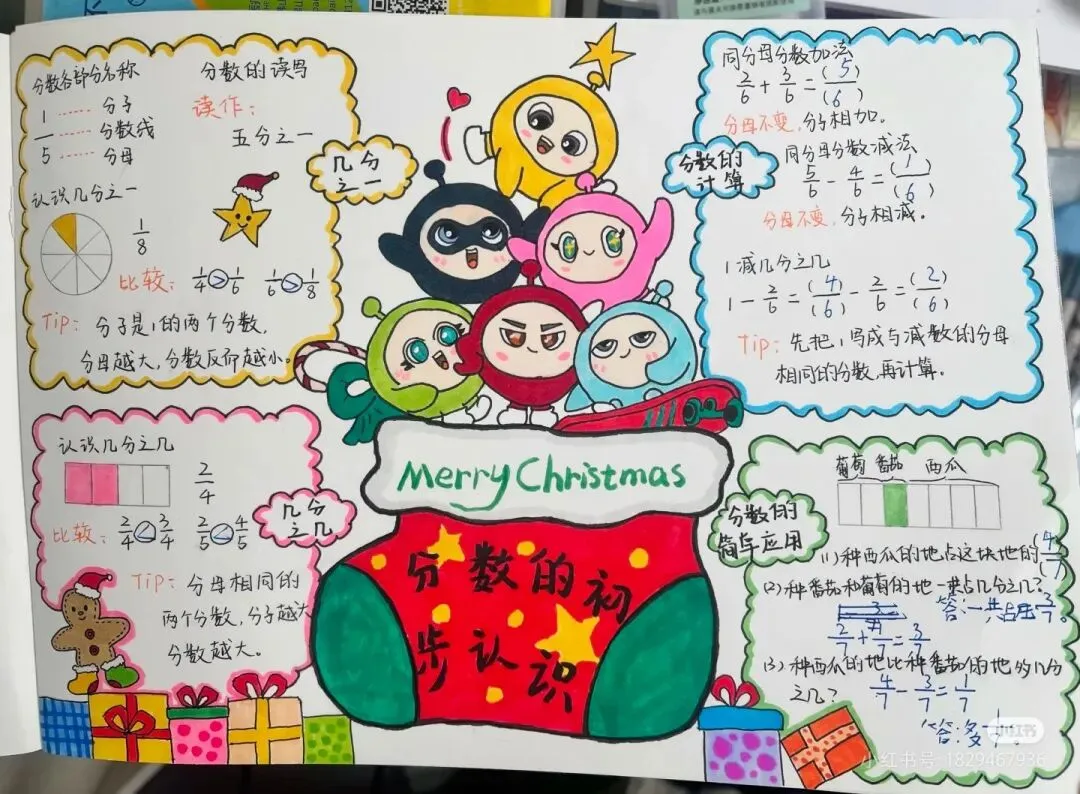 分数各部分名称
1 …… 分子
— …… 分数线
5 …… 分母
分数的读写
读作：
五分之一
几分
之一
认识几分之一
1/8
比较： 1/4 > 1/6 1/6 > 1/8
Tip： 分子是1的两个分数，
分母越大，分数反而越小。
认识几分之几
2/4
比较： 2/4 < 3/4 2/5 < 4/5
几分
之几
Tip： 分母相同的
两个分数，分子越大
分数越大。
Merry Christmas
分数的初
步认识
同分母分数加法
2/6 + 3/6 = (5)/(6)
分母不变，分子相加。
同分母分数减法
5/6 - 4/6 = (1)/(6)
分母不变，分子相减。
分数的
计算
1减几分之几
1 - 2/6 = (4)/(6) - 2/6 = (2)/(6)
Tip： 先把1写成与减数的分母
相同的分数，再计算。
葡萄 番茄 西瓜
分数的
简单应用
(1)种西瓜的地占这块地的(4/7
(2)种番茄和葡萄的地一共占几分之几？
答：一共占 3/7。
2/7 + 1/7 = 3/7
(3)种西瓜的地比种番茄的地多几分
之几？
4/7 - 3/7 = 1/7
答：多
小红书
小红书号：1829467936